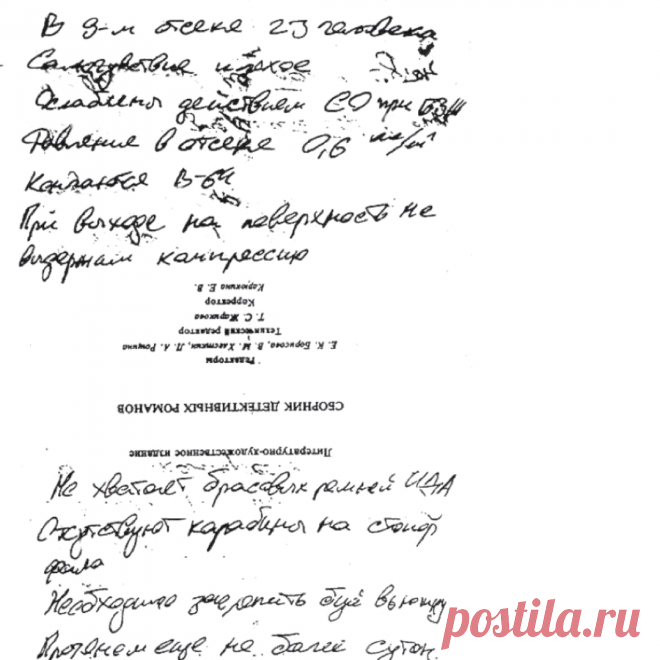 В 9-м отсеке 23 человека
Самочувствие плохое
Ослаблены действием СО при
Давление в отсеке 0,6 кг/м²
Кончаются В-64
При выходе на поверхность не
выдержим компрессию
Карюкина Е. В.
Корректор
Т. С. Жарикова
Технический редактор
Е. К. Борисова, В. М. Хвесткин, Л. А. Рощина
Редакторы
СБОРНИК ДЕТЕКТИВНЫХ РОМАНОВ
Литературно-художественное издание
Не хватает брасовых ремней ИДА
Отсутствуют карабины на стопор
фала
Необходимо закрепить буй вьюшку
Протянем еще не более суток.
postila.ru